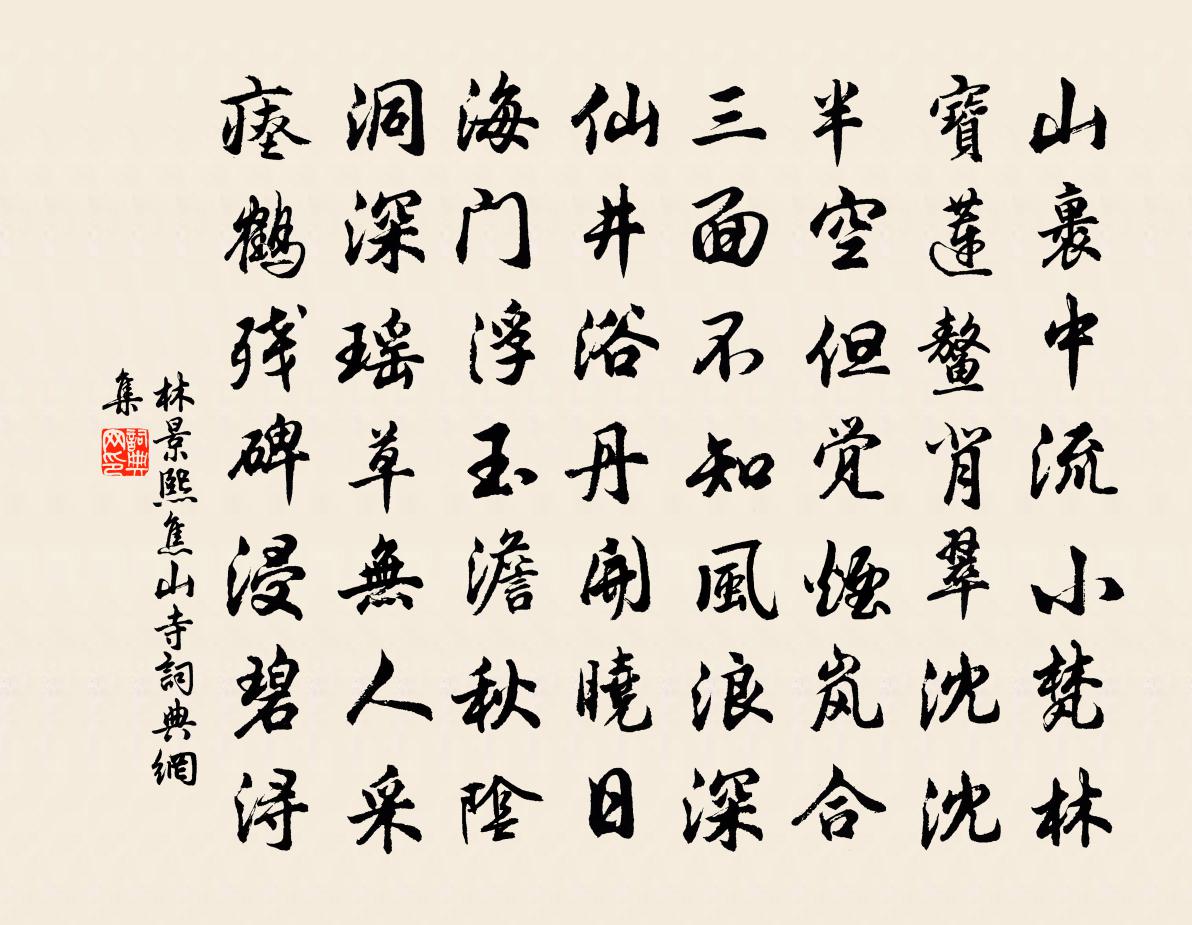 山裹中流小梵林
寶蓮鼇背翠沈沈
半空但覺煙嵐合
三面不知風浪深
仙井浴丹開曉日
海门浮玉澹秋陰
洞深瑶草無人采
瘞鶴残碑浸碧潯
林景熙焦山寺詞典網
集
詞典網印